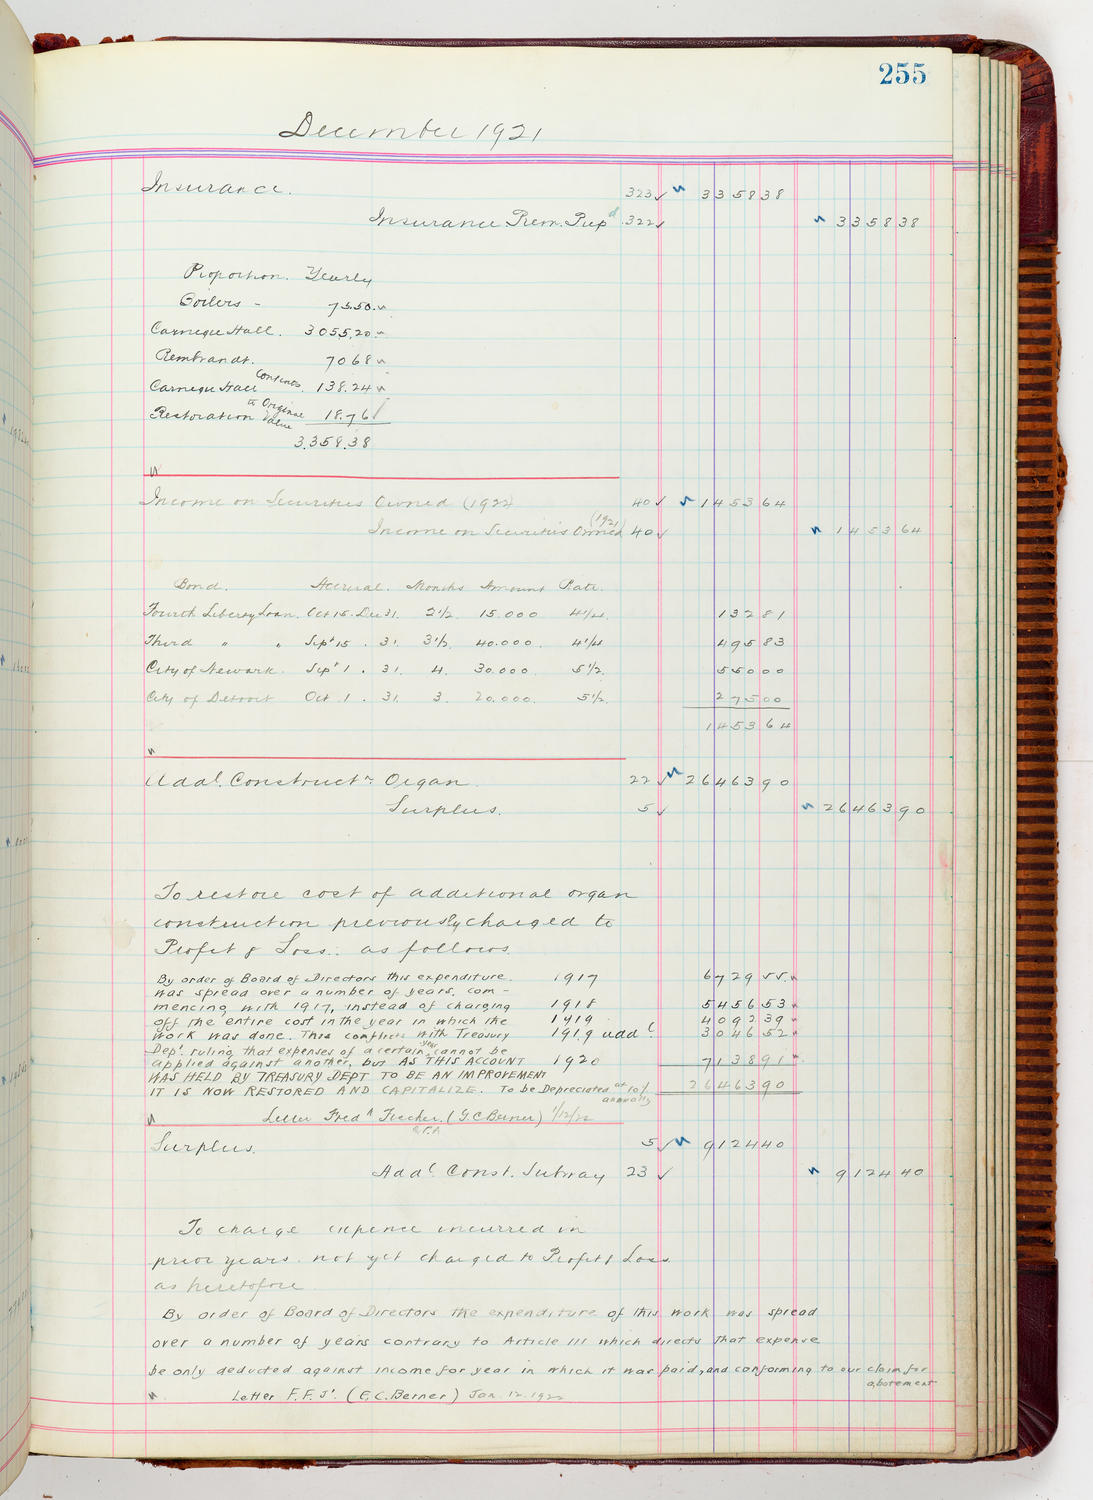 255
December 1921
Insurance. 323 ✓ 3358 38
Insurance Prem. Prep'd 322 ✓ 3358 38
Proportion. Yearly
Boilers - 75.50.
Carnegie Hall. 3055.20
Rembrandt. 70 68
Carnegie Hall Contents. 138.24
Restoration to Original Value 18.76
3,358.38
Income on Securities Owned (1922) 40 ✓ 1453 64
Income on Securities Owned (1921) 40 ✓ 1453 64
Bond. Accrual. Months Amount Rate.
Fourth Liberty Loan. Oct 15. Dec 31. 2 1/2 15.000 4 1/4. 132 81
Third " " Sept 15 . 31. 3 1/2. 40.000. 4 1/4 495 83
City of Newark. Sept 1 . 31. 4. 30.000. 5 1/2. 550 00
City of Detroit Oct. 1 . 31. 3. 20.000. 5 1/2. 275 00
1453 64
Addl. Construct'n Organ. 22 ✓ 26463 90
Surplus. 5 ✓ 26463 90
To restore cost of additional organ
construction previously charged to
Profit & Loss.. as follows.
By order of Board of Directors this expenditure. 1917 6729 55.
was spread over a number of years, com-
mencing with 1917, instead of charging 1918 5456 53
off the entire cost in the year in which the 1919 4092 39
work was done. This conflicts with Treasury 1919 addl. 3046 52
Dep't. ruling that expenses of a certain year cannot be
applied against another, but AS THIS ACCOUNT 1920 7138 91
WAS HELD BY TREASURY DEPT TO BE AN IMPROVEMENT
IT IS NOW RESTORED AND CAPITALIZE. To be Depreciated at 10% annually 26463 90
Letter Fred'k Fischer. (G.C Berner) 1/12/22
C.P.A
Surplus. 5 ✓ 9124 40
Addl. Const. Subway 23 ✓ 9124 40
To charge expence incurred in
prior years. not yet charged to Profit & Loss.
as heretofore
By order of Board of Directors the expenditure of this work was spread
over a number of years contrary to Article 111 which directs that expense
be only deducted against income for year in which it was paid, and conforming to our claim for
abatement
Letter F.F. Jr. (E.C. Berner) Jan. 12. 1922